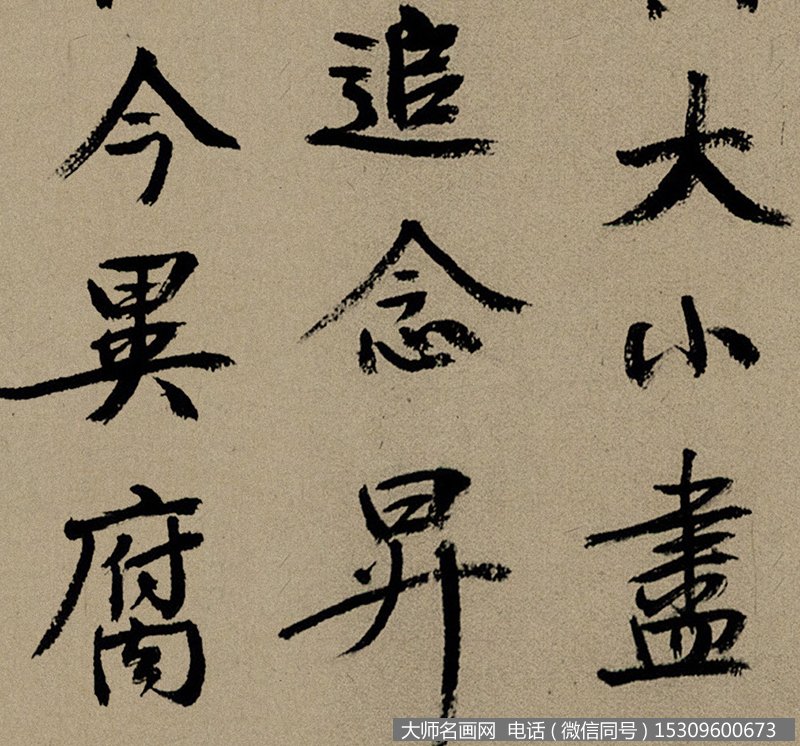 大小盡
追念昇
今異腐
大师名画网 电话（微信同号）15309600673